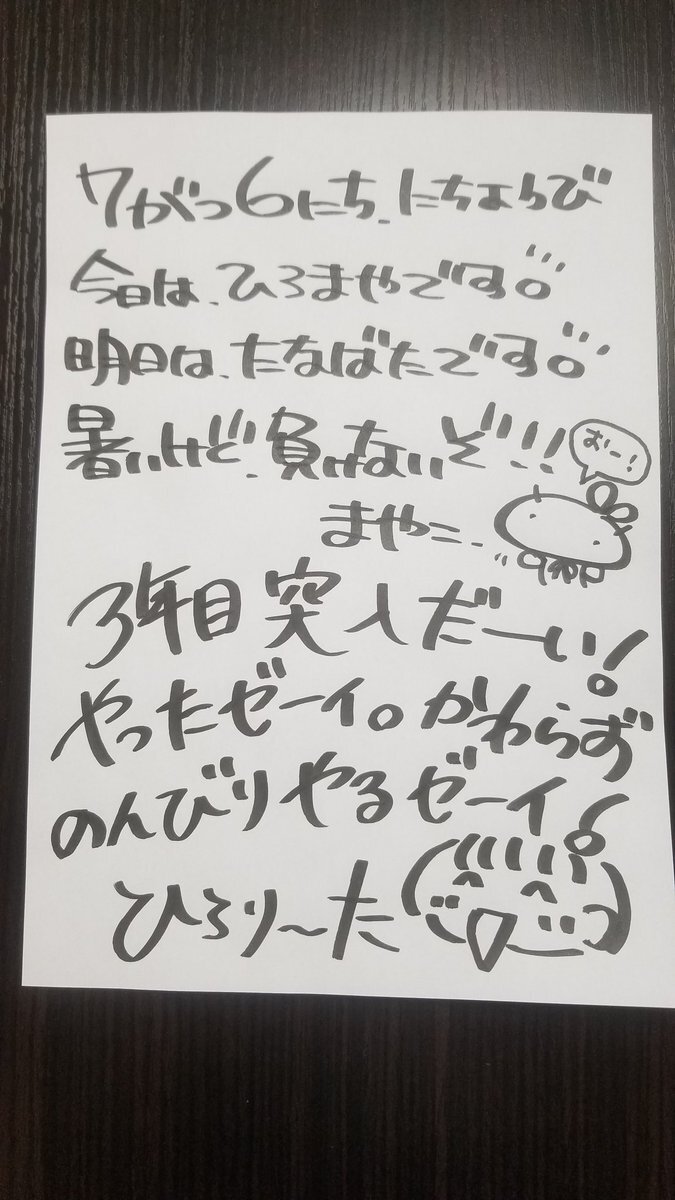 7がつ6にち、にちようび
今日は、ひろまやです。
明日は、たなばたです。
暑いけど、負けないぞ!!!
おー!
まやこ
3年目突入だーい!
やったゼーイ。かわらず
のんびりやるゼーイ!
ひろり〜た